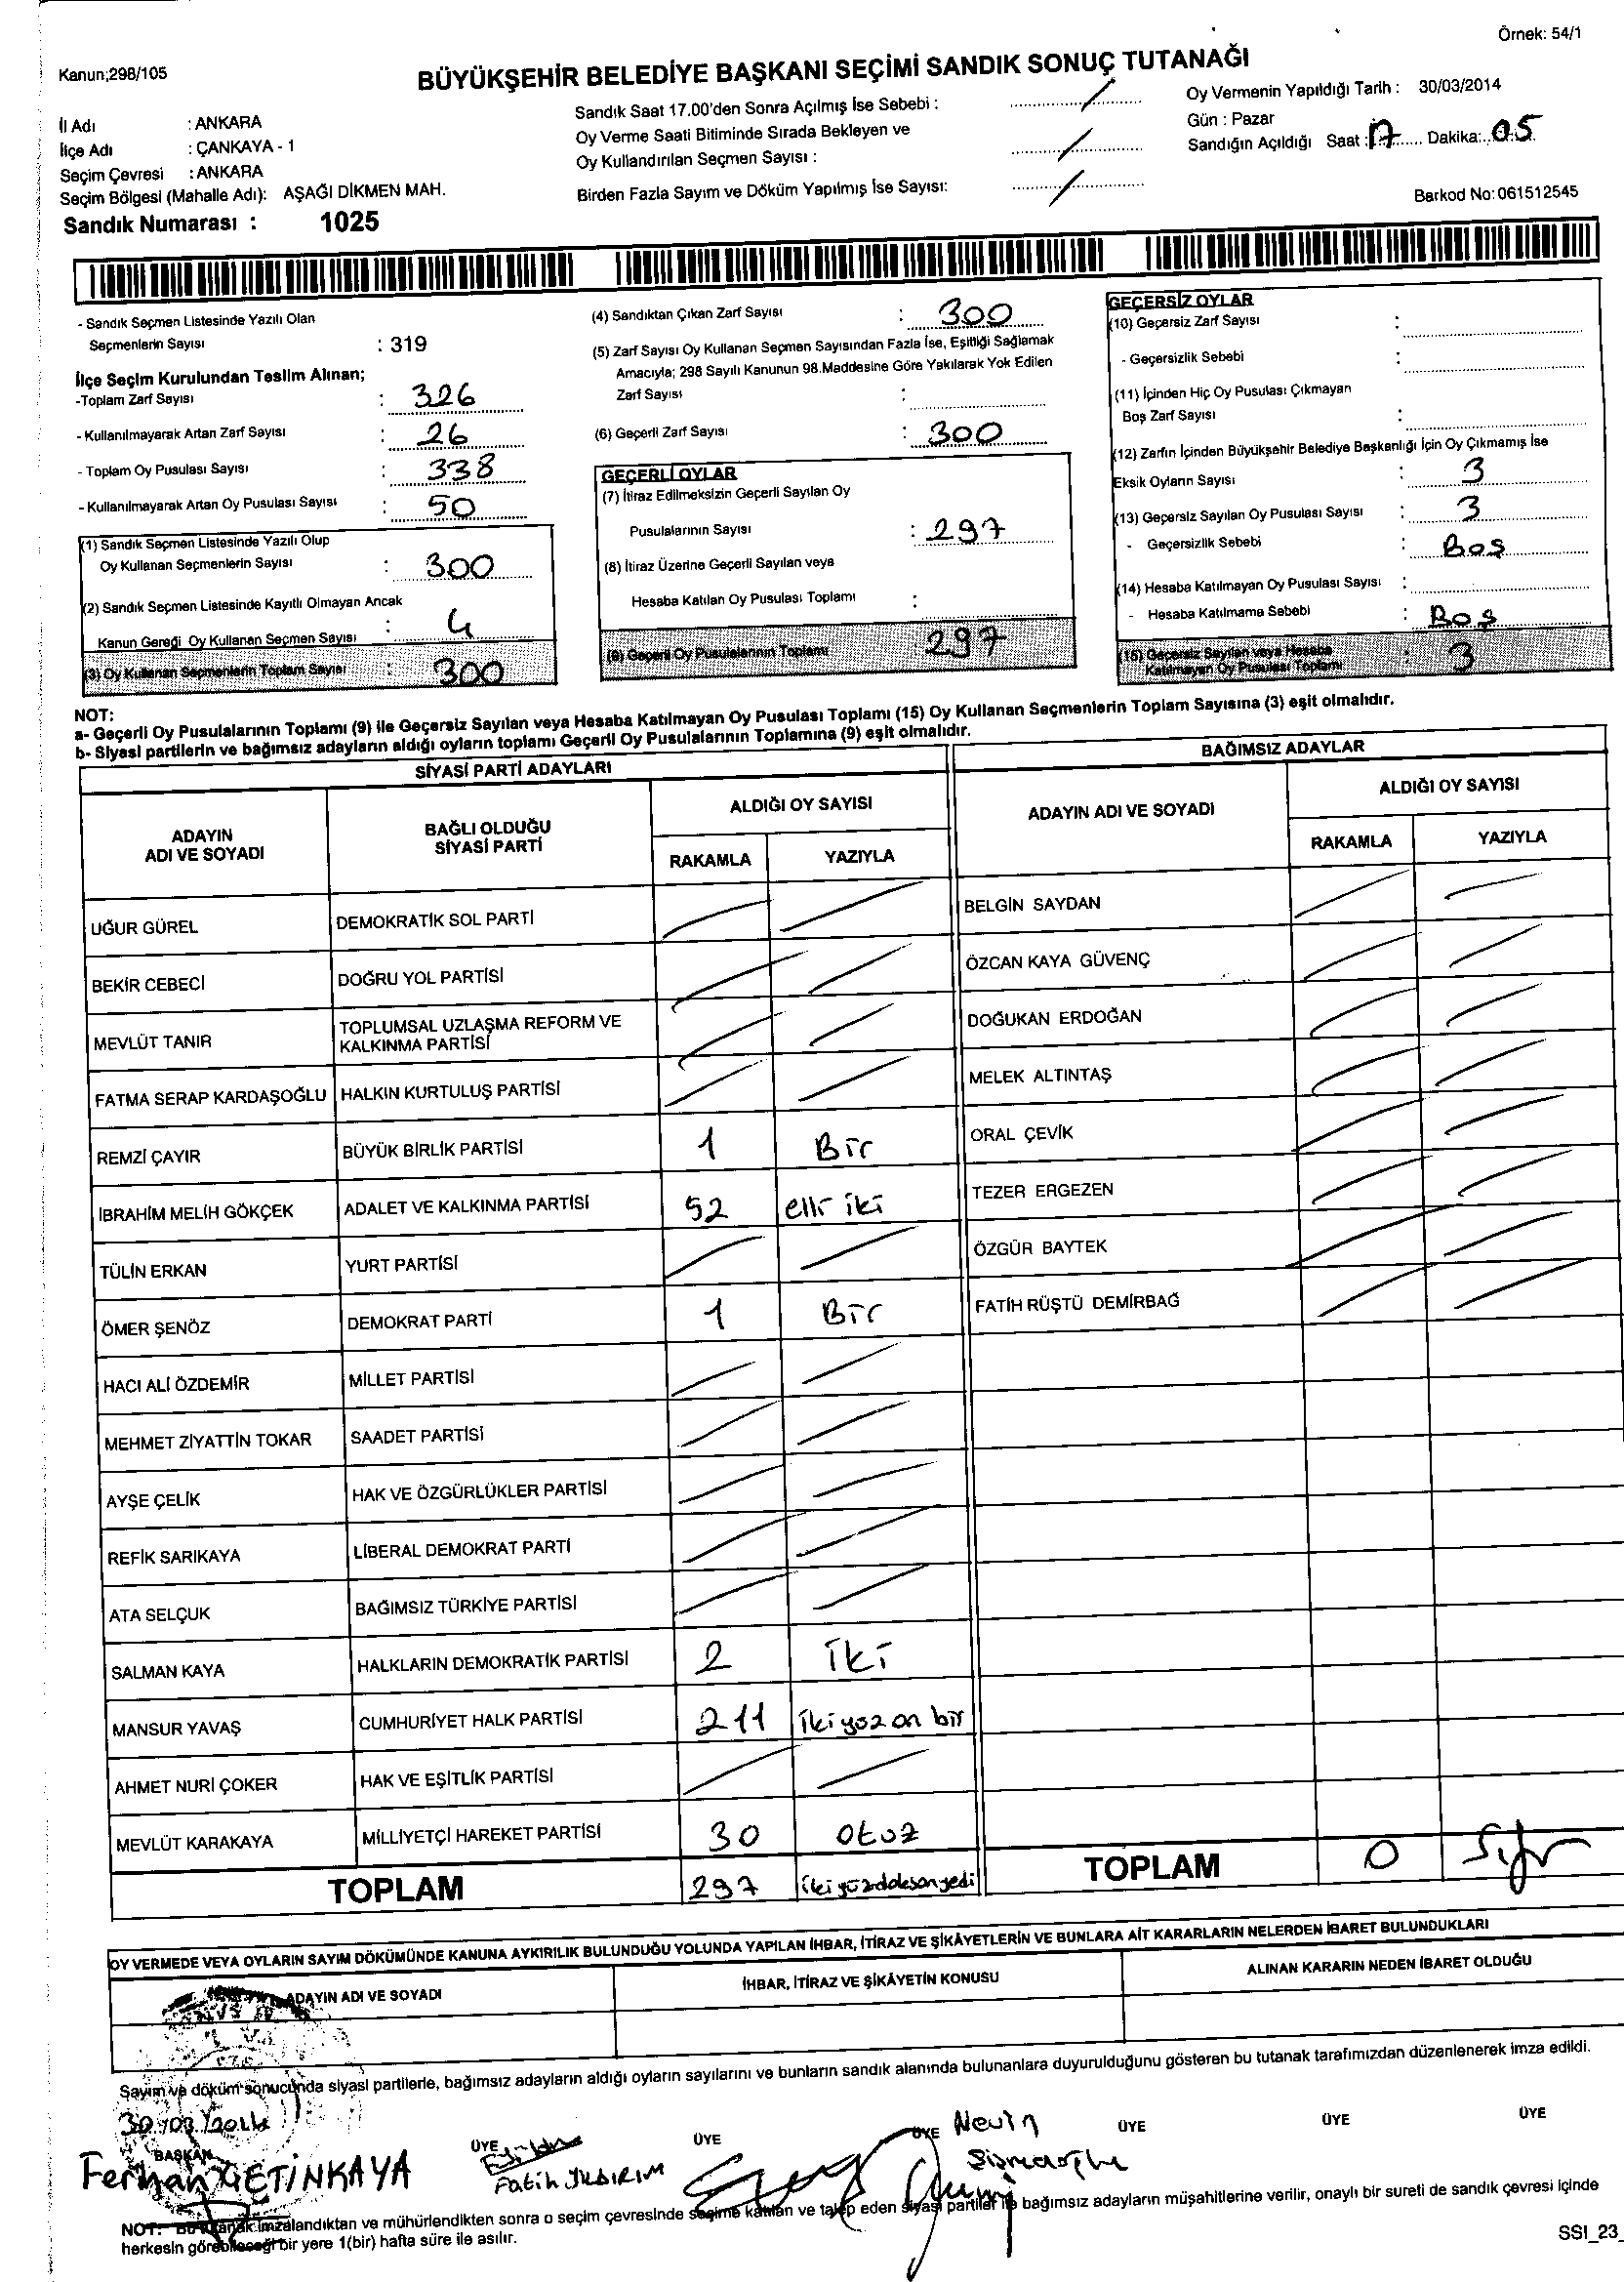 Örnek: 54/1
Kanun;298/105
BÜYÜKŞEHİR BELEDİYE BAŞKANI SEÇİMİ SANDIK SONUÇ TUTANAĞI
İl Adı : ANKARA
İlçe Adı : ÇANKAYA - 1
Seçim Çevresi : ANKARA
Seçim Bölgesi (Mahalle Adı): AŞAĞI DİKMEN MAH.
Sandık Numarası : 1025
Sandık Saat 17.00'den Sonra Açılmış İse Sebebi : /
Oy Verme Saati Bitiminde Sırada Bekleyen ve
Oy Kullandırılan Seçmen Sayısı : /
Birden Fazla Sayım ve Döküm Yapılmış İse Sayısı: /
Oy Vermenin Yapıldığı Tarih : 30/03/2014
Gün : Pazar
Sandığın Açıldığı Saat : 17 Dakika: 05
Barkod No: 061512545
- Sandık Seçmen Listesinde Yazılı Olan
Seçmenlerin Sayısı : 319
İlçe Seçim Kurulundan Teslim Alınan;
-Toplam Zarf Sayısı : 326
- Kullanılmayarak Artan Zarf Sayısı : 26
- Toplam Oy Pusulası Sayısı : 338
- Kullanılmayarak Artan Oy Pusulası Sayısı : 50
(1) Sandık Seçmen Listesinde Yazılı Olup
Oy Kullanan Seçmenlerin Sayısı : 300
(2) Sandık Seçmen Listesinde Kayıtlı Olmayan Ancak
Kanun Gereği Oy Kullanan Seçmen Sayısı : 4
(3) Oy Kullanan Seçmenlerin Toplam Sayısı : 300
(4) Sandıktan Çıkan Zarf Sayısı : 300
(5) Zarf Sayısı Oy Kullanan Seçmen Sayısından Fazla İse, Eşitliği Sağlamak
Amacıyla; 298 Sayılı Kanunun 98.Maddesine Göre Yakılarak Yok Edilen
Zarf Sayısı :
(6) Geçerli Zarf Sayısı : 300
GEÇERLİ OYLAR
(7) İtiraz Edilmeksizin Geçerli Sayılan Oy
Pusulalarının Sayısı : 297
(8) İtiraz Üzerine Geçerli Sayılan veya
Hesaba Katılan Oy Pusulası Toplamı :
(9) Geçerli Oy Pusulalarının Toplamı 297
GEÇERSİZ OYLAR
(10) Geçersiz Zarf Sayısı :
- Geçersizlik Sebebi :
(11) İçinden Hiç Oy Pusulası Çıkmayan
Boş Zarf Sayısı :
(12) Zarfın İçinden Büyükşehir Belediye Başkanlığı İçin Oy Çıkmamış İse
Eksik Oyların Sayısı : 3
(13) Geçersiz Sayılan Oy Pusulası Sayısı : 3
- Geçersizlik Sebebi : Boş
(14) Hesaba Katılmayan Oy Pusulası Sayısı :
- Hesaba Katılmama Sebebi : Boş
(15) Geçersiz Sayılan veya Hesaba
Katılmayan Oy Pusulası Toplamı : 3
NOT:
a- Geçerli Oy Pusulalarının Toplamı (9) ile Geçersiz Sayılan veya Hesaba Katılmayan Oy Pusulası Toplamı (15) Oy Kullanan Seçmenlerin Toplam Sayısına (3) eşit olmalıdır.
b- Siyasi partilerin ve bağımsız adayların aldığı oyların toplamı Geçerli Oy Pusulalarının Toplamına (9) eşit olmalıdır.
SİYASİ PARTİ ADAYLARI
ADAYIN
ADI VE SOYADI
BAĞLI OLDUĞU
SİYASİ PARTİ
ALDIĞI OY SAYISI
RAKAMLA YAZIYLA
UĞUR GÜREL DEMOKRATİK SOL PARTİ
BEKİR CEBECİ DOĞRU YOL PARTİSİ
MEVLÜT TANIR TOPLUMSAL UZLAŞMA REFORM VE
KALKINMA PARTİSİ
FATMA SERAP KARDAŞOĞLU HALKIN KURTULUŞ PARTİSİ
REMZİ ÇAYIR BÜYÜK BİRLİK PARTİSİ 1 Bir
İBRAHİM MELİH GÖKÇEK ADALET VE KALKINMA PARTİSİ 52 elli iki
TÜLİN ERKAN YURT PARTİSİ
ÖMER ŞENÖZ DEMOKRAT PARTİ 1 Bir
HACI ALİ ÖZDEMİR MİLLET PARTİSİ
MEHMET ZİYATTİN TOKAR SAADET PARTİSİ
AYŞE ÇELİK HAK VE ÖZGÜRLÜKLER PARTİSİ
REFİK SARIKAYA LİBERAL DEMOKRAT PARTİ
ATA SELÇUK BAĞIMSIZ TÜRKİYE PARTİSİ
SALMAN KAYA HALKLARIN DEMOKRATİK PARTİSİ 2 İki
MANSUR YAVAŞ CUMHURİYET HALK PARTİSİ 211 İkiyüz on bir
AHMET NURİ ÇOKER HAK VE EŞİTLİK PARTİSİ
MEVLÜT KARAKAYA MİLLİYETÇİ HAREKET PARTİSİ 30 otuz
TOPLAM 297 ikiyüzdoksanyedi
BAĞIMSIZ ADAYLAR
ADAYIN ADI VE SOYADI
ALDIĞI OY SAYISI
RAKAMLA YAZIYLA
BELGİN SAYDAN
ÖZCAN KAYA GÜVENÇ
DOĞUKAN ERDOĞAN
MELEK ALTINTAŞ
ORAL ÇEVİK
TEZER ERGEZEN
ÖZGÜR BAYTEK
FATİH RÜŞTÜ DEMİRBAĞ
TOPLAM 0 Sıfır
OY VERMEDE VEYA OYLARIN SAYIM DÖKÜMÜNDE KANUNA AYKIRILIK BULUNDUĞU YOLUNDA YAPILAN İHBAR, İTİRAZ VE ŞİKÂYETLERİN VE BUNLARA AİT KARARLARIN NELERDEN İBARET BULUNDUKLARI
ADAYIN ADI VE SOYADI İHBAR, İTİRAZ VE ŞİKÂYETİN KONUSU ALINAN KARARIN NEDEN İBARET OLDUĞU
Sayım ve döküm sonucunda siyasi partilerle, bağımsız adayların aldığı oyların sayılarını ve bunların sandık alanında bulunanlara duyurulduğunu gösteren bu tutanak tarafımızdan düzenlenerek imza edildi.
30/03/2014
BAŞKAN ÜYE ÜYE ÜYE ÜYE ÜYE ÜYE
Ferhan ÇETİNKAYA Fatih YILDIRIM Nevin
NOT: Bu tutanak imzalandıktan ve mühürlendikten sonra o seçim çevresinde seçime katılan ve talep eden siyasi partiler ile bağımsız adayların müşahitlerine verilir, onaylı bir sureti de sandık çevresi içinde
herkesin görebileceği bir yere 1(bir) hafta süre ile asılır.
SSI_23_